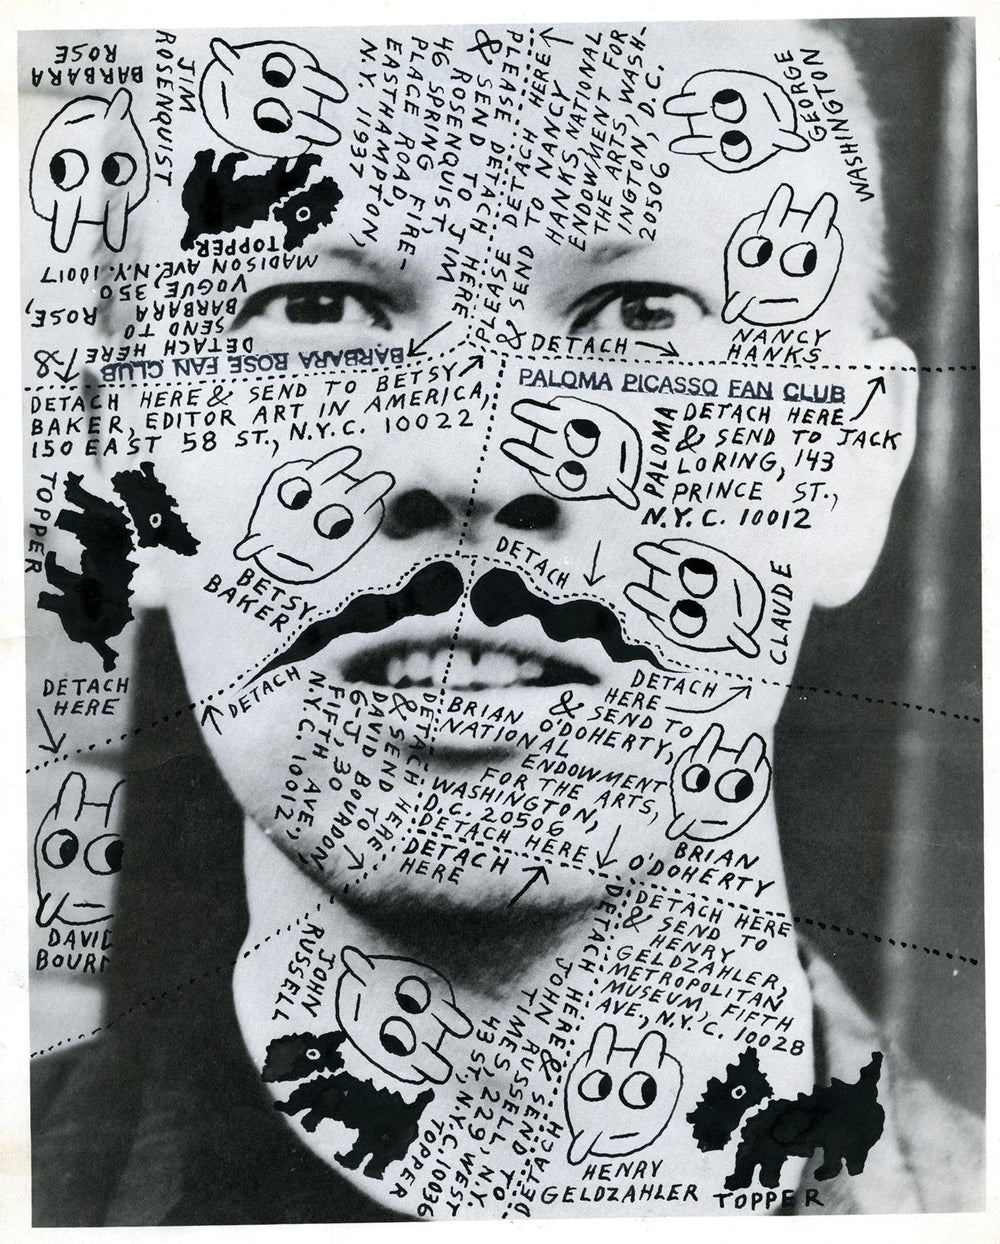 BARBARA
ROSE
JIM
ROSENQUIST
PLEASE DETACH HERE
& SEND TO JIM
ROSENQUIST,
46 SPRING FIRE-
PLACE ROAD,
EASTHAMPTON,
N.Y. 11937
PLEASE DETACH HERE
& SEND TO NANCY
HANKS, NATIONAL
ENDOWMENT FOR
THE ARTS, WASH-
INGTON, D.C.
20506
GEORGE
WASHINGTON
NANCY
HANKS
TOPPER
DETACH HERE &
SEND TO
BARBARA ROSE,
VOGUE, 350
MADISON AVE. N.Y. 10017
BARBARA ROSE FAN CLUB
DETACH
PALOMA PICASSO FAN CLUB
DETACH HERE & SEND TO BETSY
BAKER, EDITOR ART IN AMERICA,
150 EAST 58 ST., N.Y.C. 10022
DETACH HERE
& SEND TO JACK
LORING, 143
PRINCE ST.,
N.Y.C. 10012
PALOMA
TOPPER
BETSY
BAKER
DETACH
CLAUDE
DETACH
HERE
DETACH
DETACH
HERE
& SEND TO
BRIAN O'DOHERTY,
NATIONAL
ENDOWMENT
FOR THE ARTS,
WASHINGTON,
D.C. 20506
DETACH HERE
DETACH HERE
& SEND TO
DAVID BOURDON,
6-J, 30
FIFTH AVE,
N.Y.C. 10012
DETACH
HERE
BRIAN
O'DOHERTY
DAVID
BOUR
JOHN
RUSSELL
DETACH HERE
& SEND TO
HENRY
GELDZAHLER,
METROPOLITAN
MUSEUM, FIFTH
AVE., N.Y.C. 10028
DETACH HERE & SEND TO
JOHN RUSSELL, N.Y.
TIMES, 229 WEST
43 ST., N.Y.C. 10036
TOPPER
DETACH
HENRY
GELDZAHLER
TOPPER